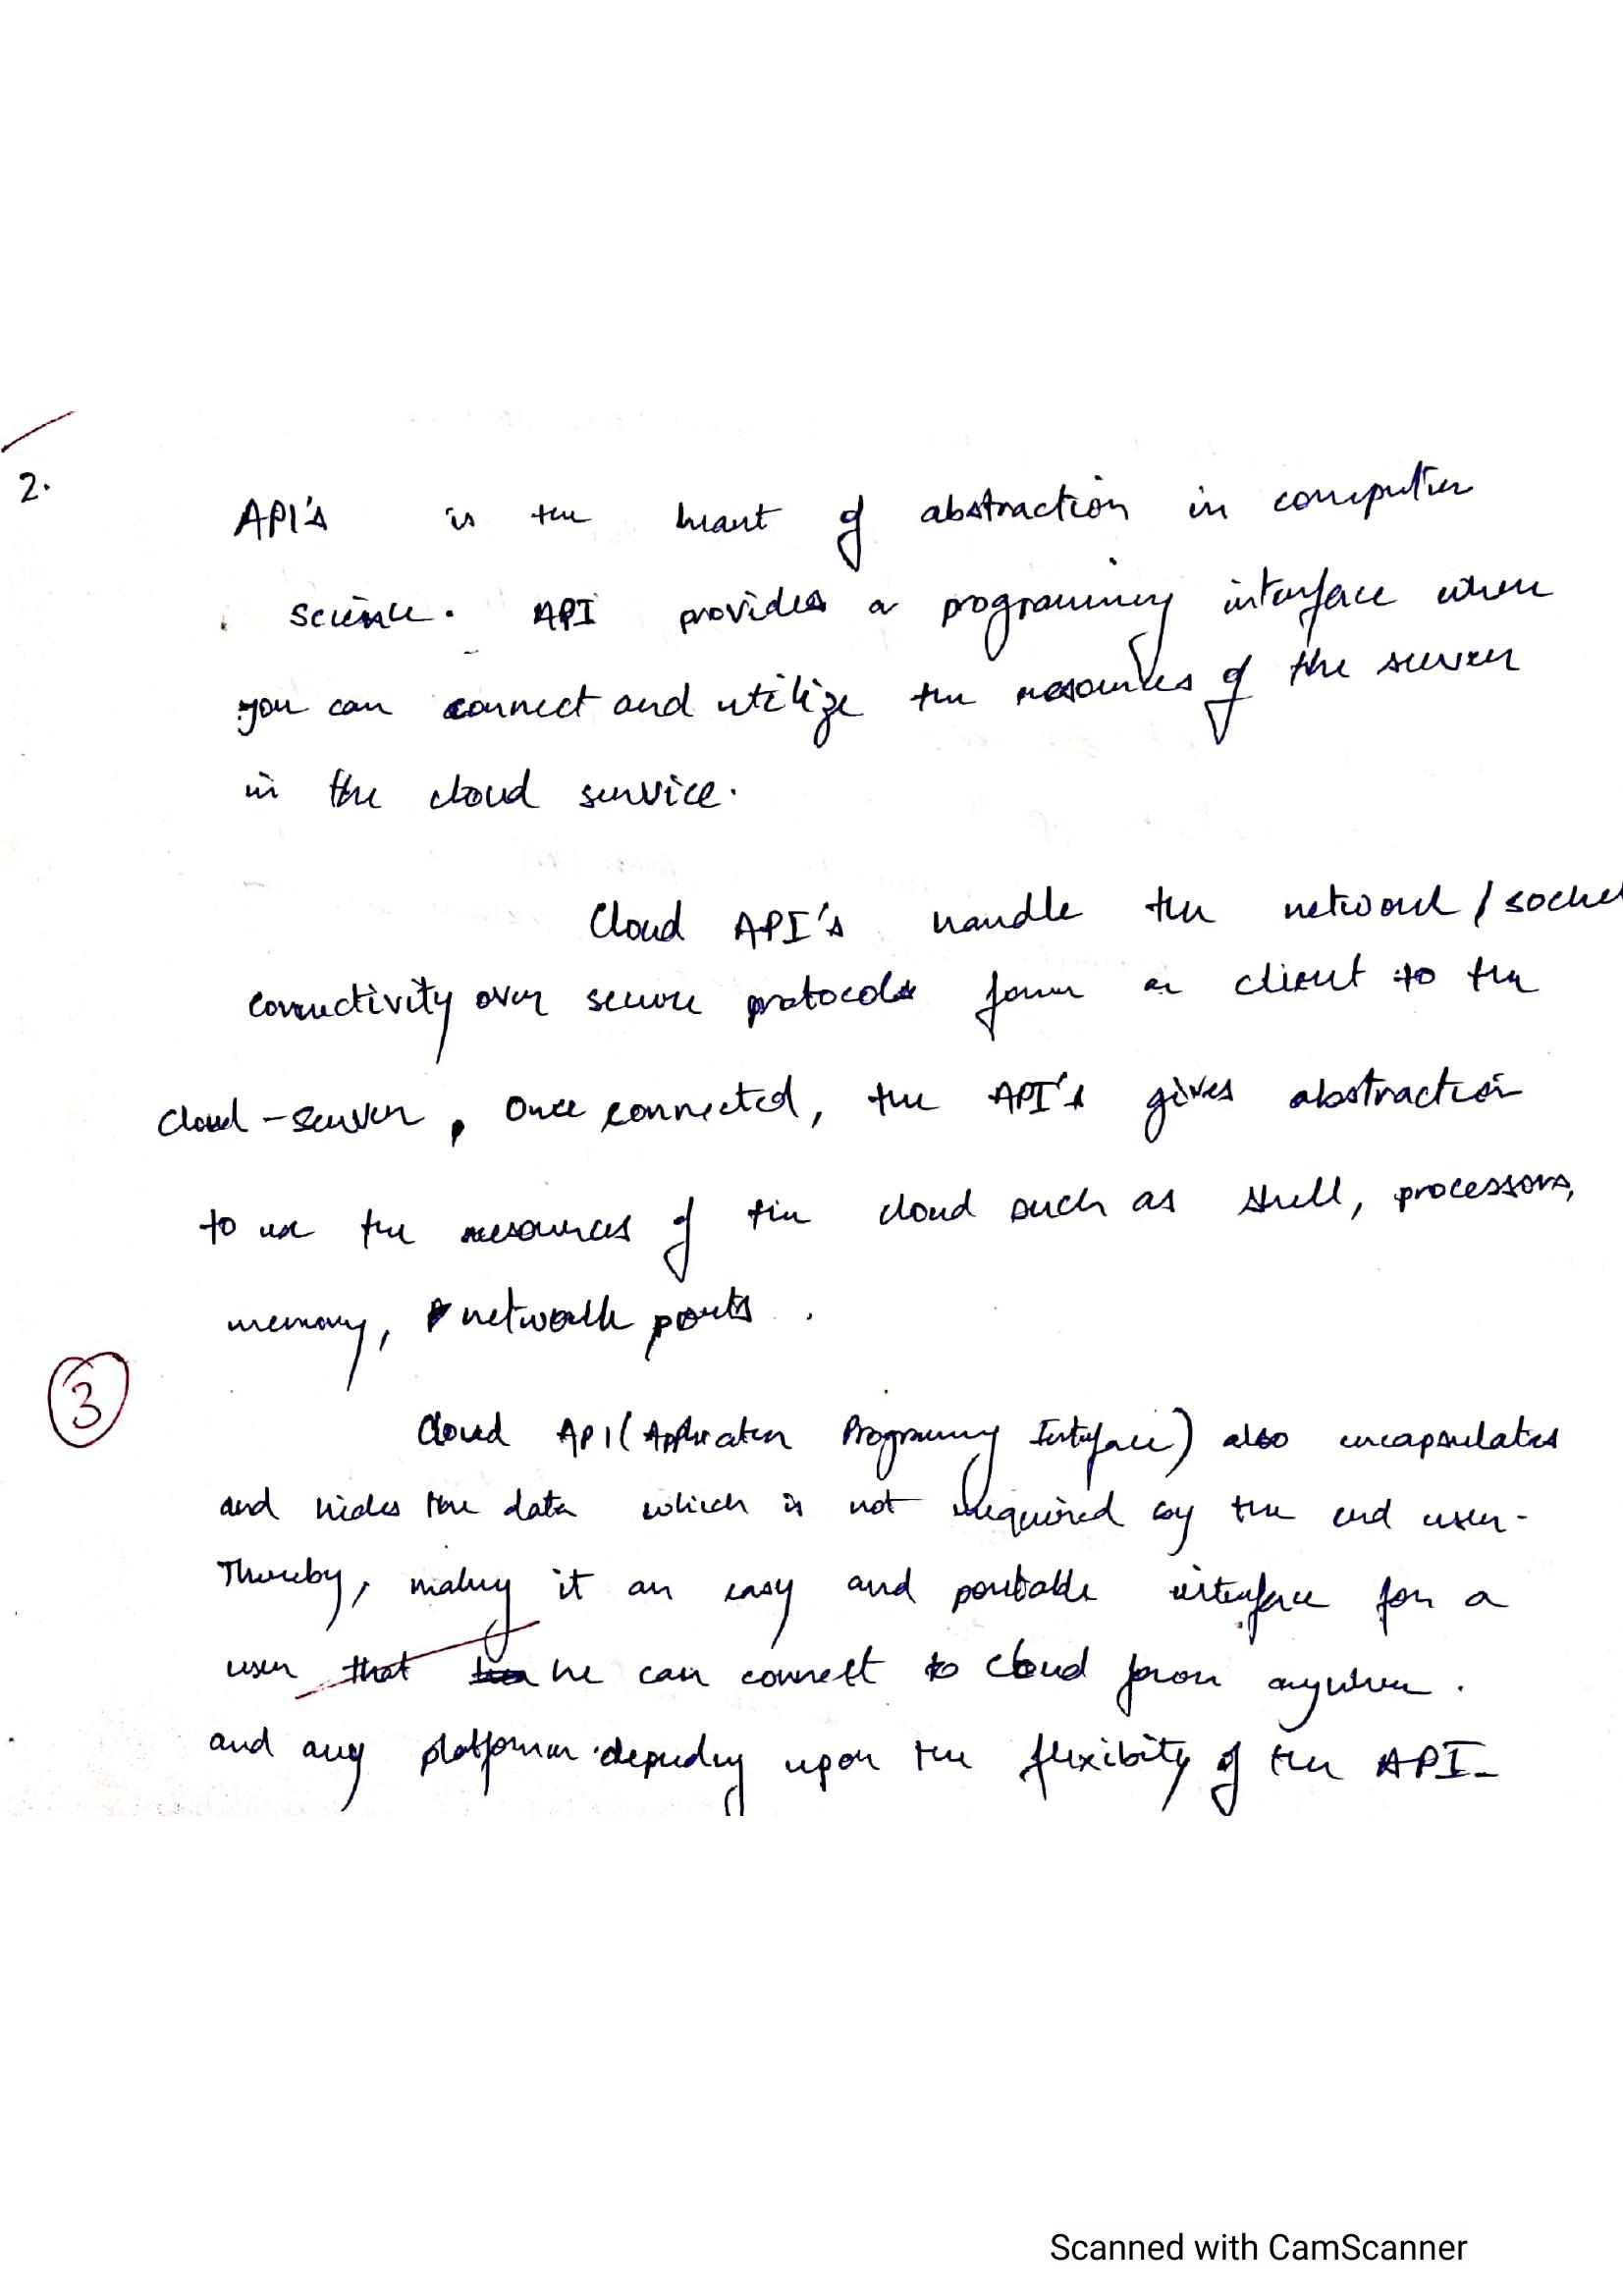 2.
API's is the heart of abstraction in computer
science. API provides a programming interface where
you can connect and utilize the resources of the server
in the cloud service.
Cloud API's handle the network / socket
connectivity over secure protocols from a client to the
cloud-server, Once connected, the API's gives abstraction
to use the resources of the cloud such as shell, processors,
memory, network ports.
3
Cloud API (Application Programming Interface) also encapsulates
and hides the data which is not required by the end user.
Thereby, making it an easy and portable interface for a
user that he can connect to cloud from anywhere.
and any platform depending upon the flexibity of the API.
Scanned with CamScanner